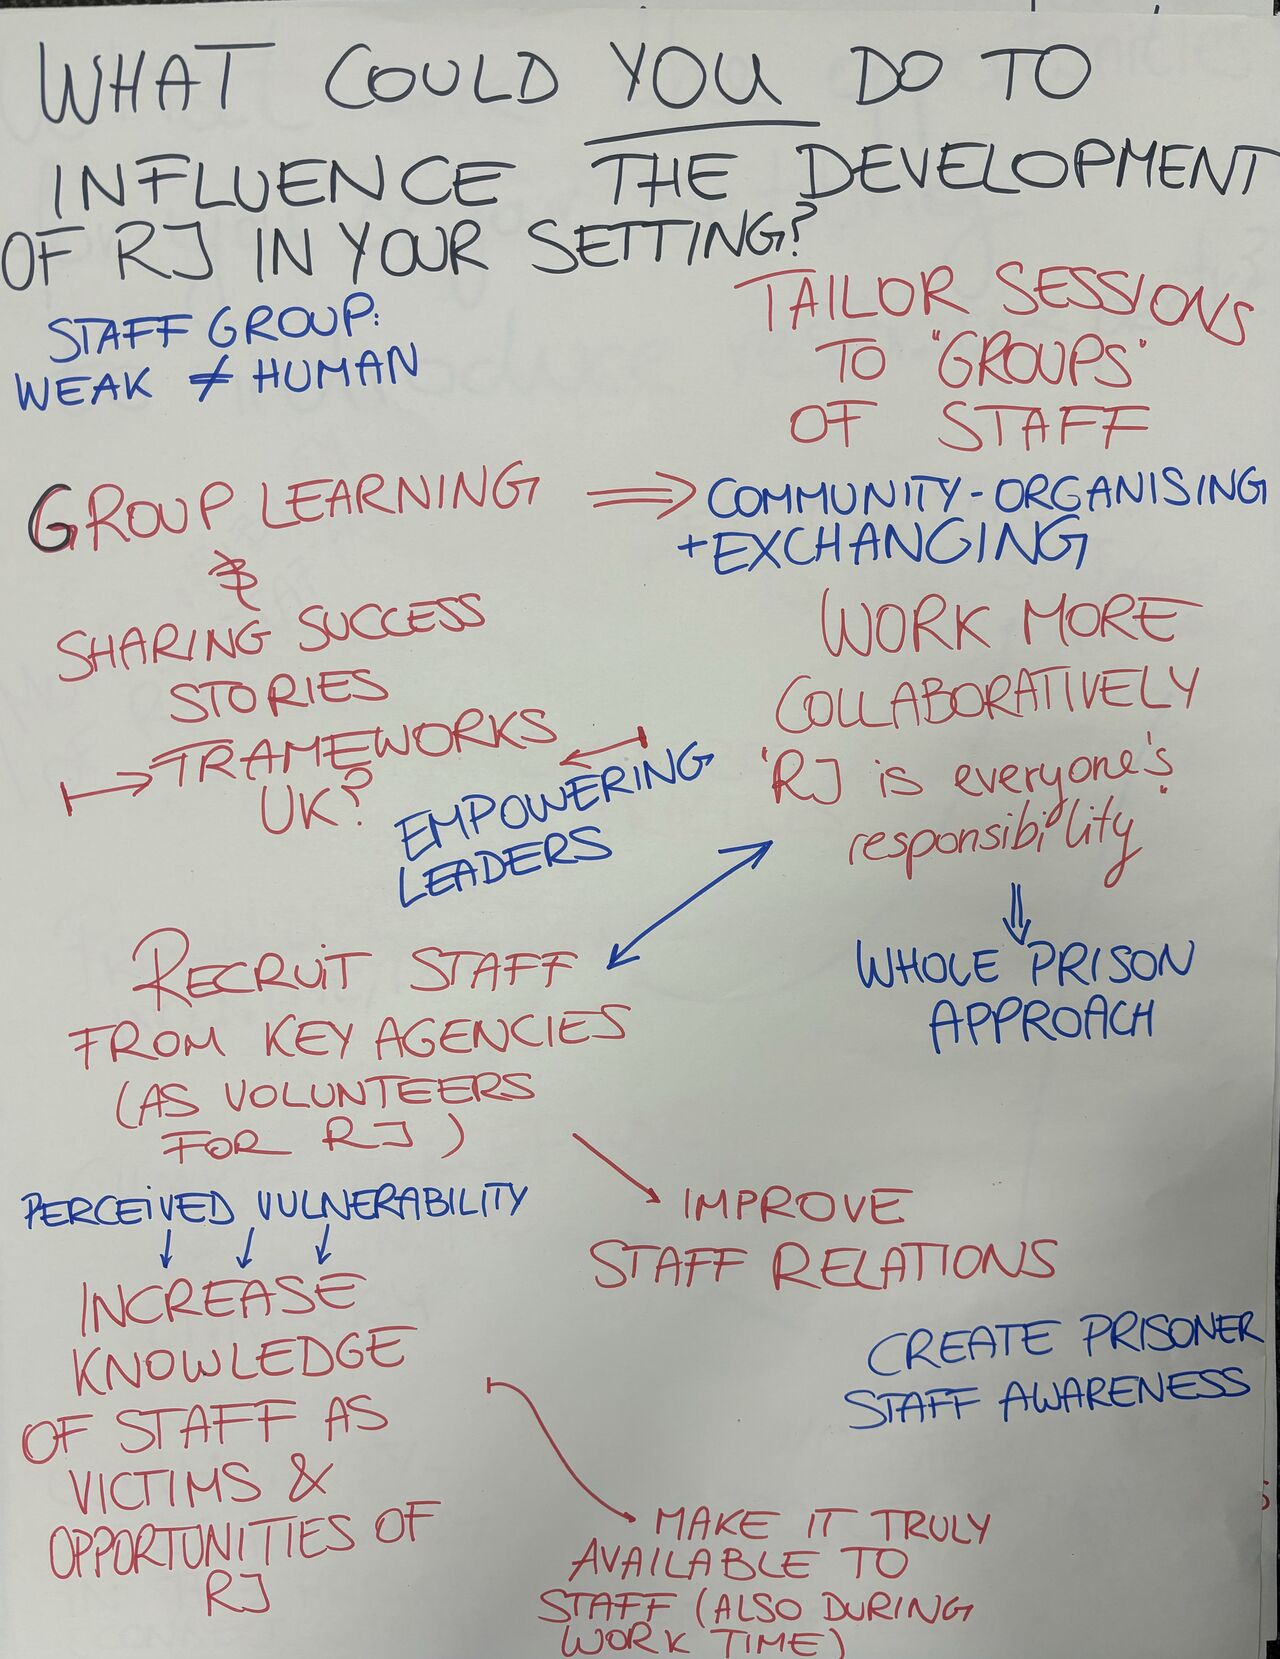 WHAT COULD YOU DO TO
INFLUENCE THE DEVELOPMENT
OF RJ IN YOUR SETTING?
STAFF GROUP:
WEAK ≠ HUMAN
TAILOR SESSIONS
TO "GROUPS"
OF STAFF
GROUP LEARNING ⇒ COMMUNITY-ORGANISING
+ EXCHANGING
&
SHARING SUCCESS
STORIES
→ FRAMEWORKS ←
UK?
EMPOWERING
LEADERS
WORK MORE
COLLABORATIVELY
"RJ is everyone's
responsibility"
⇓
WHOLE PRISON
APPROACH
RECRUIT STAFF
FROM KEY AGENCIES
(AS VOLUNTEERS
FOR RJ)
→ IMPROVE
STAFF RELATIONS
PERCEIVED VULNERABILITY
↓ ↓ ↓
INCREASE
KNOWLEDGE
OF STAFF AS
VICTIMS &
OPPORTUNITIES OF
RJ
CREATE PRISONER
STAFF AWARENESS
→ MAKE IT TRULY
AVAILABLE TO
STAFF (ALSO DURING
WORK TIME)